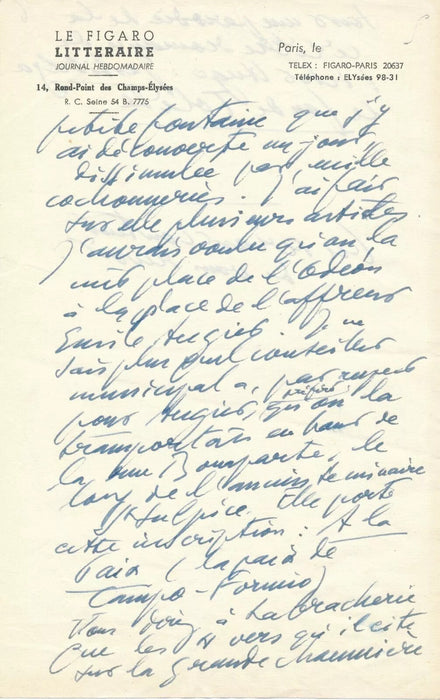 LE FIGARO
LITTERAIRE
JOURNAL HEBDOMADAIRE
Paris, le
TELEX : FIGARO-PARIS 20637
Téléphone : ELYsées 98-31
14, Rond-Point des Champs-Élysées
R. C. Seine 54 B. 7775
petite fontaine que j'y
ai découverte un jour,
dissimulée par mille
cochonneries. J'ai fait
sur elle plusieurs articles.
J'aurais voulu qu'on la
mît place de l'Odéon
à la place de l'affreux
Emile Augier. Je ne
sais plus quel conseiller
municipal a, par respect
pour Augier, préféré qu'on la
transportât en haut de
la rue Bonaparte, le
long de l'ancien séminaire
St Sulpice. Elle porte
cette inscription : A la
Paix (la paix de
Campo-Formio)
Vous dirai-je à
que les vers qu'il cite
sur la grande Chaumière